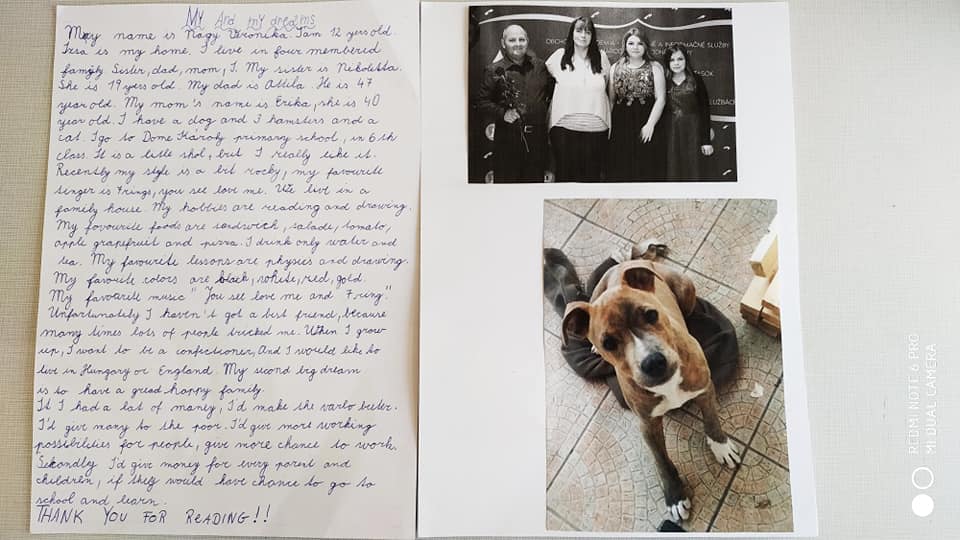 My And my dreams
May name is Nagy Veronika I am 12 yers old.
Izsa is my home. I live in four membered
family Sister, dad, mom, I. My sister is Nikoletta.
She is 19 yers old. My dad is Attila. He is 47
year old. My mom's name is Erika, she is 40
year old. I have a dog and I hamsters and a
cat. I go to Dome Károly primary school, in 6th
class. It is a little shol, but I really like it.
Recently my style is a bit rocky, my favourite
singer is 4rings, you see love me. We live in a
family house. My hobbies are reading and drawing.
My fovourite foods are sendwich, salade, tomato,
apple grapefruit and pizza. I drink only water and
tea. My favourite lessons are physics and drawing.
My favorite colors are black, white, red, gold.
My favourite music "You see love me and 4 ring."
Unfortunately I haven't got a best friend, because
many times lots of people tricked me. When I grow
up, I want to be a confectioner, And I would like to
live in Hungary or England. My second big dream
is to have a great happy family.
If I had a lot of maney, I'd make the varlo beter.
I'd give many to the poor. I'd give more working
possibilities for people, give more chance to work.
Sekondly I'd give money for every parent and
children, if they would have chance to go to
school and learn.
THANK YOU FOR READING!!
OBCHO
É A INFORMAČNÉ SLUŽBY
REDMI NOTE 6 PRO
MI DUAL CAMERA